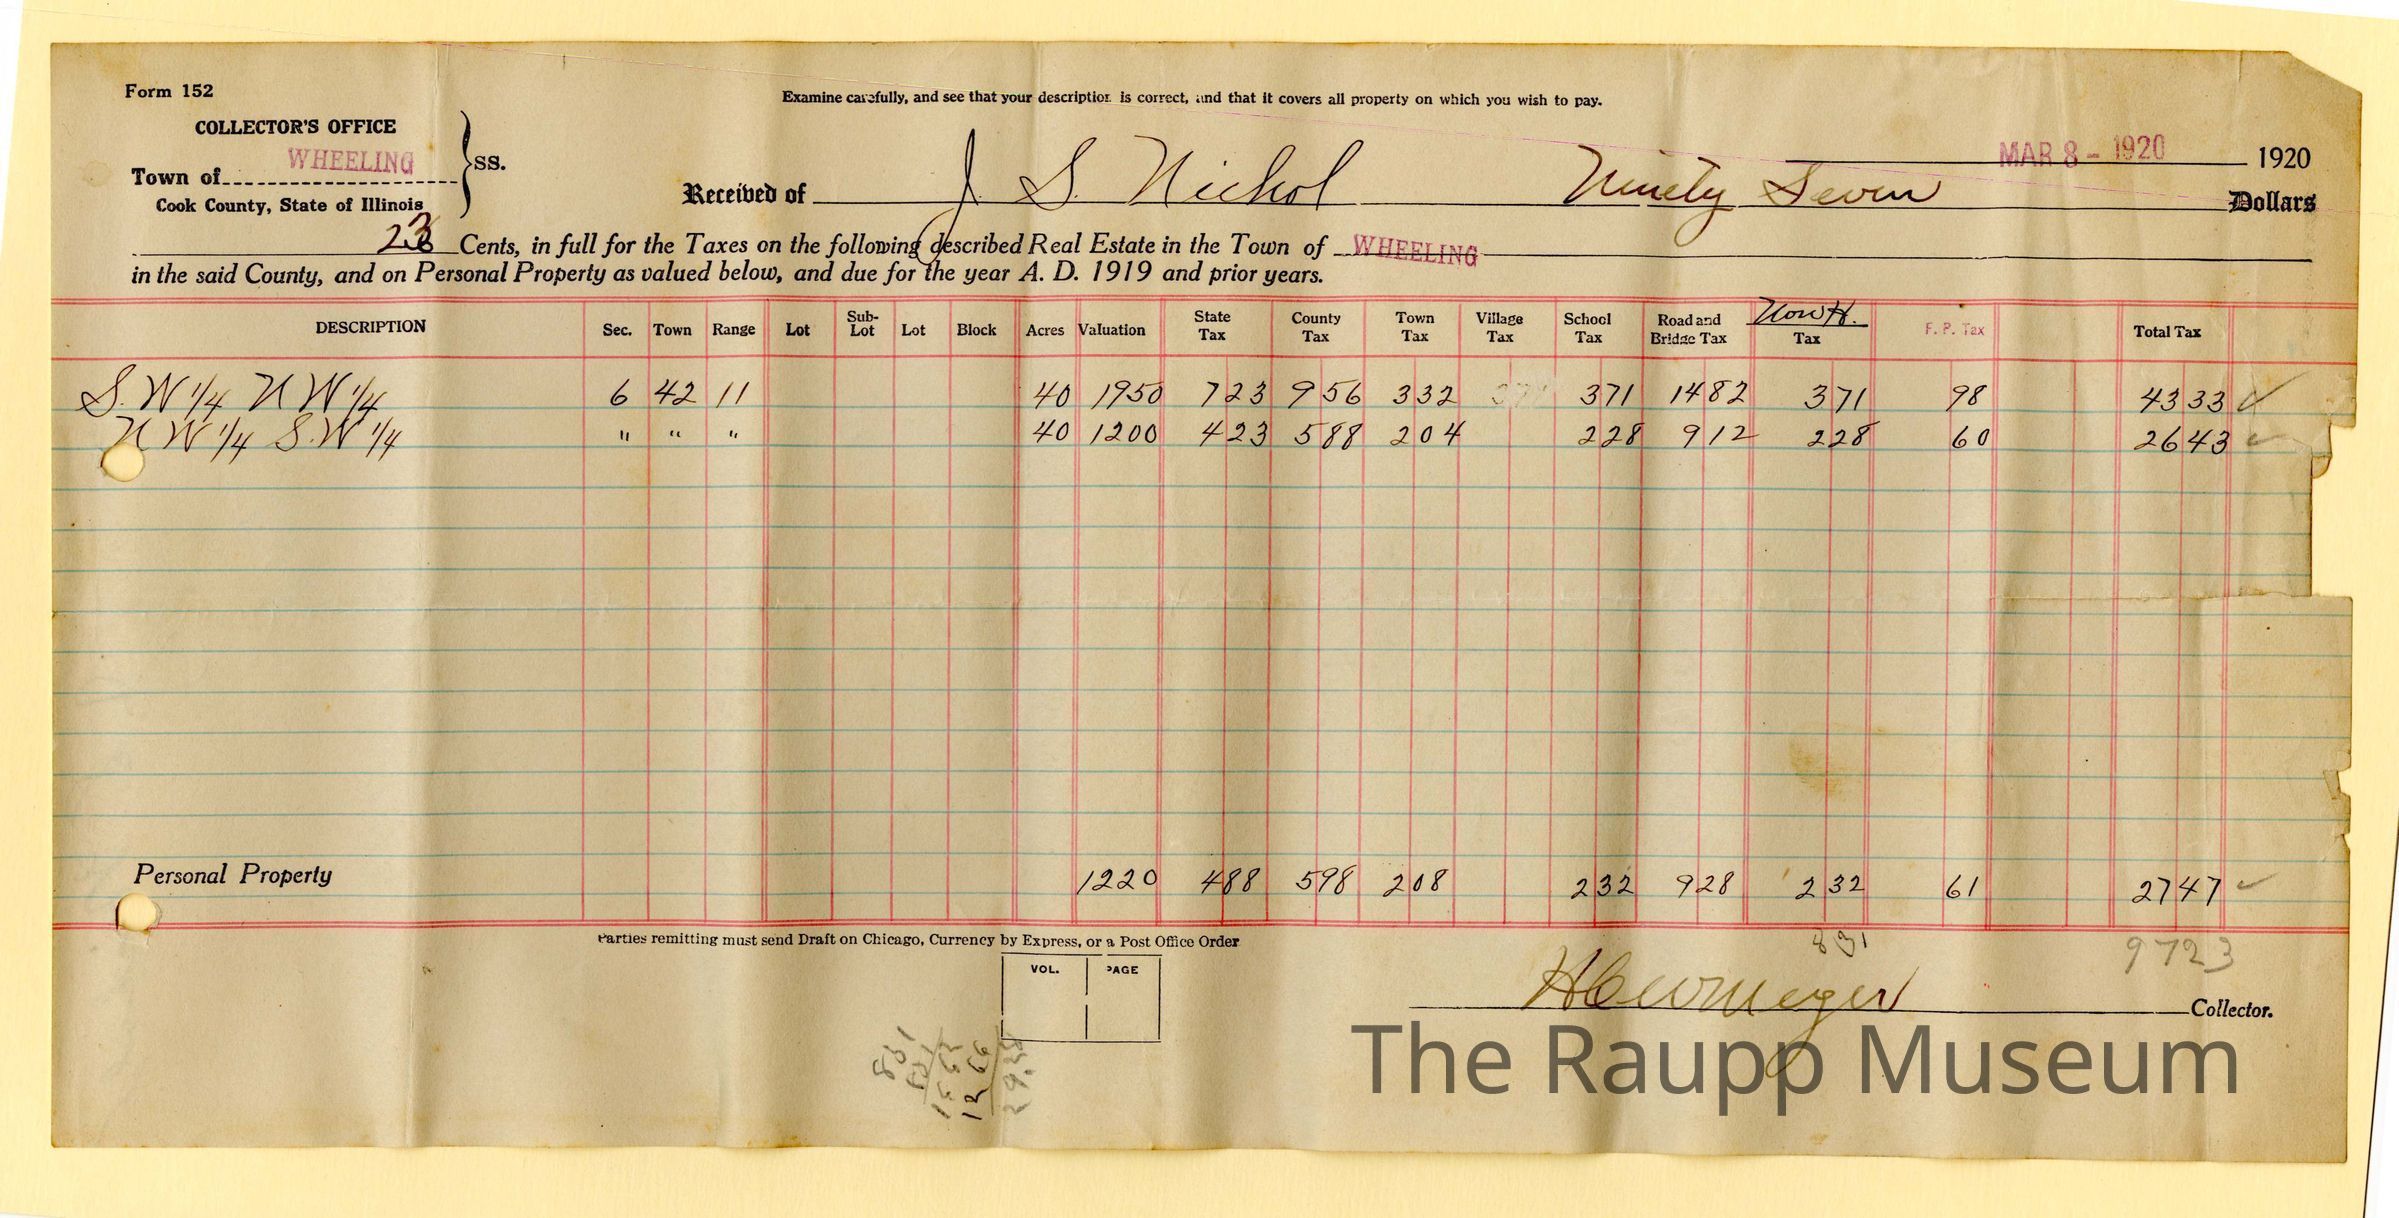 Form 152
Examine carefully, and see that your description is correct, and that it covers all property on which you wish to pay.
COLLECTOR'S OFFICE
Town of WHEELING ss.
Cook County, State of Illinois
MAR 8 - 1920 1920
Received of J. S. Nichol Ninety Seven Dollars
23 Cents, in full for the Taxes on the following described Real Estate in the Town of WHEELING
in the said County, and on Personal Property as valued below, and due for the year A. D. 1919 and prior years.
DESCRIPTION Sec. Town Range Lot Sub-Lot Lot Block Acres Valuation State Tax County Tax Town Tax Village Tax School Tax Road and Bridge Tax Non H. Tax F. P. Tax Total Tax
S. W 1/4 N W 1/4 6 42 11 40 1950 723 956 332 371 1482 371 98 4333 ✓
N W 1/4 S. W 1/4 " " " 40 1200 423 588 204 228 912 228 60 2643 ✓
Personal Property 1220 488 598 208 232 928 232 61 2747 ✓
Parties remitting must send Draft on Chicago, Currency by Express, or a Post Office Order
831 9723
VOL. PAGE
Collector.
The Raupp Museum